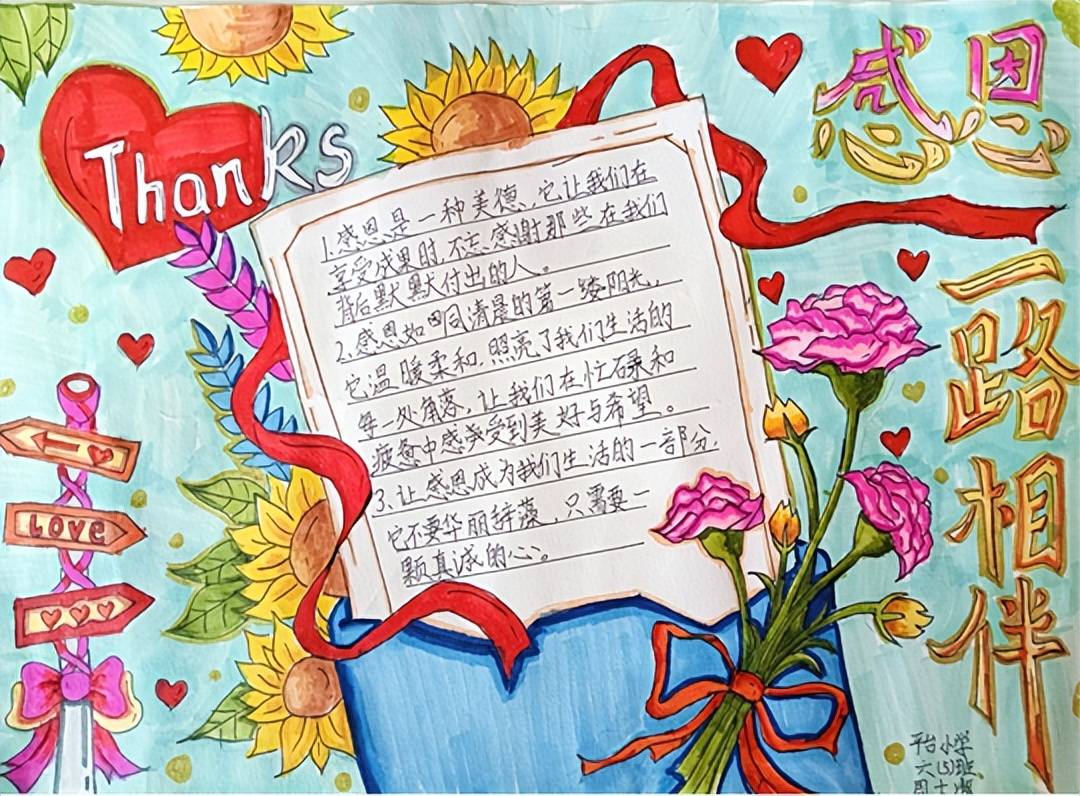 Thanks
感恩
一路相伴
1.感恩是一种美德,它让我们在
享受成果时,不忘感谢那些在我们
背后默默付出的人。
2.感恩如同清晨的第一缕阳光,
它温暖柔和,照亮了我们生活的
每一处角落,让我们在忙碌和
疲惫中感受到美好与希望。
3.让感恩成为我们生活的一部分,
它不要华丽辞藻,只需要一
颗真诚的心。
LOVE
平台小学
六(5)班